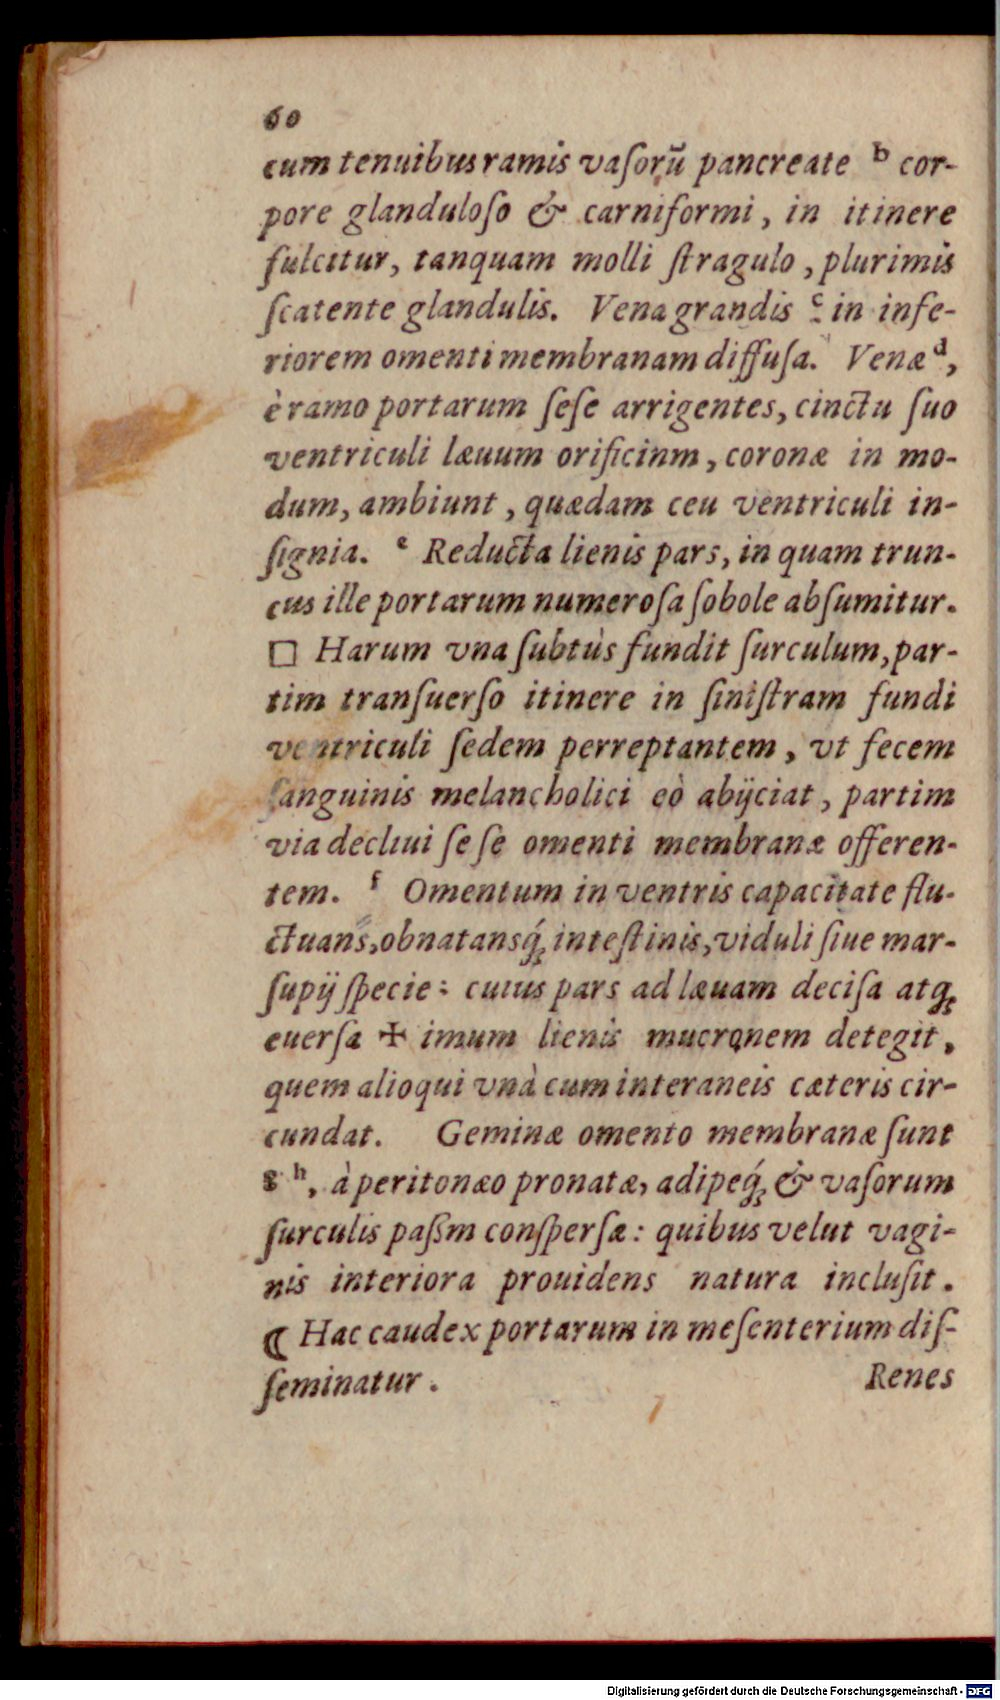 60
cum tenuibus ramis vaſorũ pancreate ᵇ cor-
pore glanduloſo & carniformi, in itinere
fulcitur, tanquam molli ſtragulo, plurimis
ſcatente glandulis. Vena grandis ᶜ in infe-
riorem omenti membranam diffuſa. Venæ ᵈ,
è ramo portarum ſeſe arrigentes, cinctu ſuo
ventriculi læuum orificinm, coronæ in mo-
dum, ambiunt, quædam ceu ventriculi in-
ſignia. ᵉ Reducta lienis pars, in quam trun-
cus ille portarum numeroſa ſobole abſumitur.
□ Harum vna ſubtùs fundit ſurculum, par-
tim tranſuerſo itinere in ſiniſtram fundi
ventriculi ſedem perreptantem, vt fecem
ſanguinis melancholici eò abijciat, partim
via decliui ſe ſe omenti membranæ offeren-
tem. ᶠ Omentum in ventris capacitate flu-
ctuans, obnatansq́; inteſtinis, viduli ſiue mar-
ſupij ſpecie: cuius pars ad læuam deciſa atq;
euerſa ✠ imum lienis mucronem detegit,
quem alioqui vnà cum interaneis cæteris cir-
cundat. Geminæ omento membranæ ſunt
ᵍ ʰ, à peritonæo pronatæ, adipeq́; & vaſorum
ſurculis paßm conſperſæ: quibus velut vagi-
nis interiora prouidens natura incluſit.
¶ Hac caudex portarum in meſenterium diſ-
ſeminatur. Renes
Digitalisierung gefördert durch die Deutsche Forschungsgemeinschaft - DFG